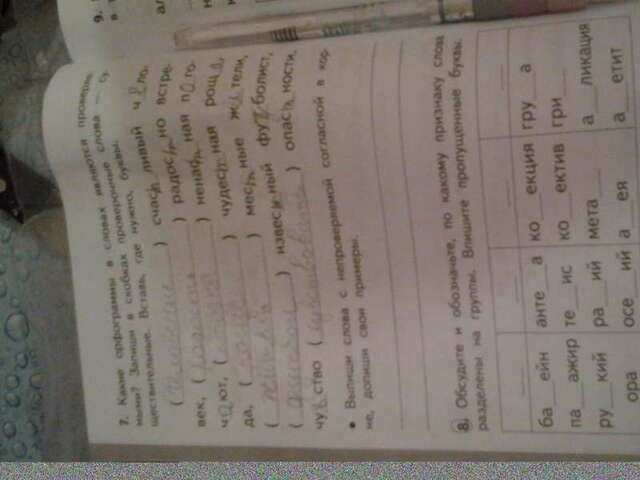 7. Какие орфограммы в словах являются проверяе-
мыми? Запиши в скобках проверочные слова — су-
ществительные. Вставь, где нужно, буквы.
( ) счас ливый ч ло-
век, ( радость ) радос но встре-
ч ают, ( ) ненас ная п о го-
да, ( ) чудес ная рощ а,
( ) мес т ные ж и тели,
( ) извес т ный фу т болист,
чу в ство ( чувствовать ) опас ности.
• Выпиши слова с непроверяемой согласной в кор-
не, допиши свои примеры.
8. Обсудите и обозначьте, по какому признаку слова
разделены на группы. Впишите пропущенные буквы.
ба___ейн анте___а ко___екция гру___а
па___ажир те___ис ко___ектив гри___
ру___кий ра___ий мета___ а___ликация
___ора осе___ий а___ея а___етит
9.